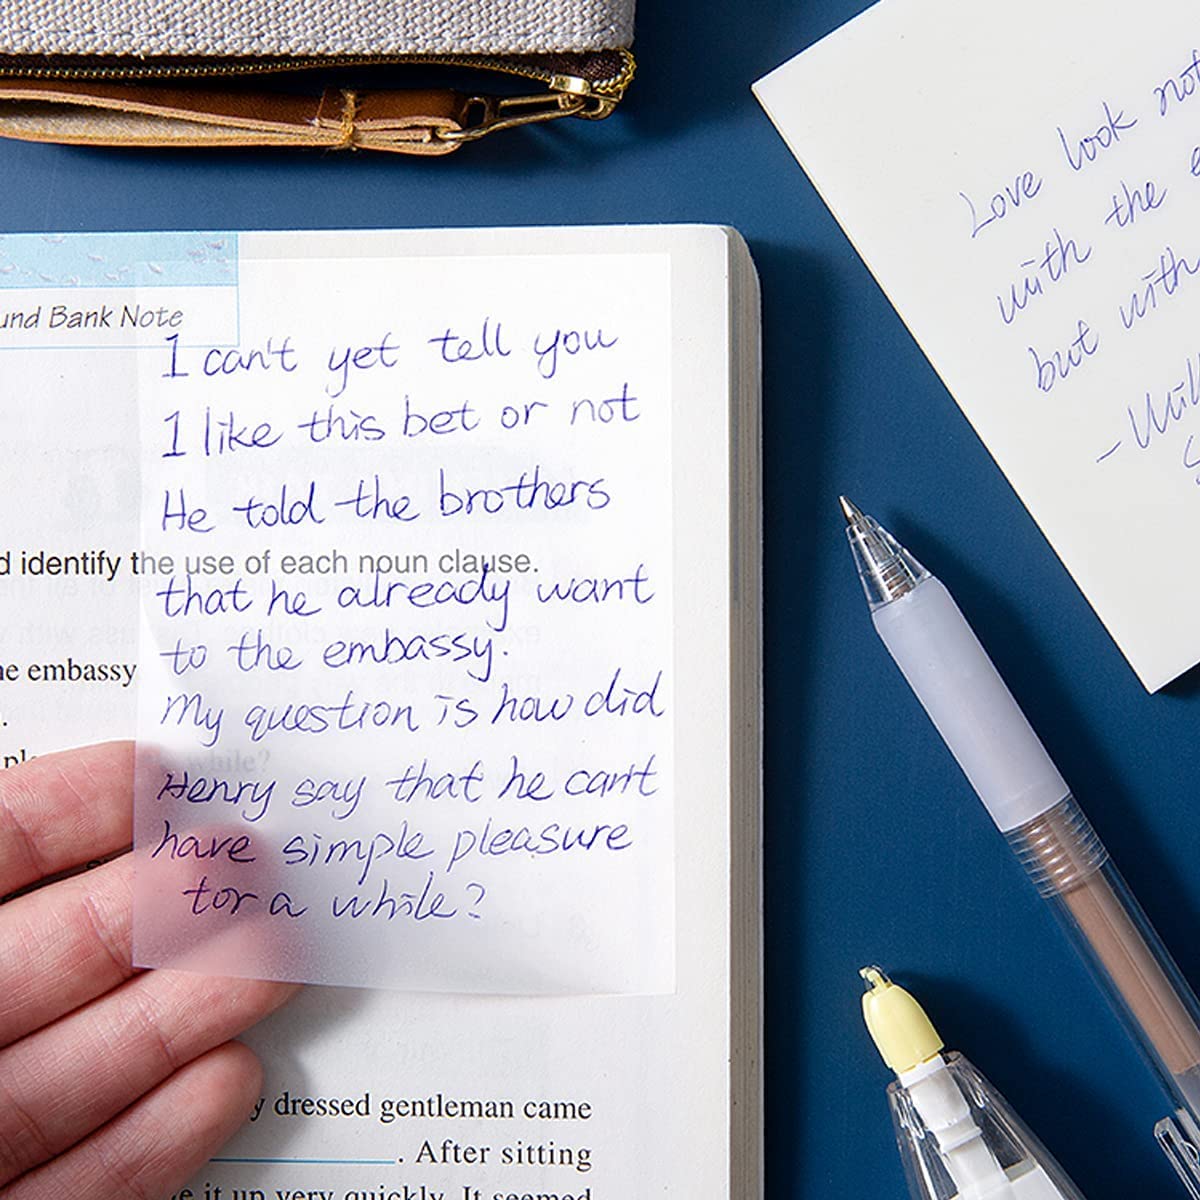 und Bank Note
I can't yet tell you
I like this bet or not
He told the brothers
d identify the use of each noun clause.
that he already want
he embassy
to the embassy.
.
My question is how did
while?
Henry say that he can't
have simple pleasure
for a while?
y dressed gentleman came
. After sitting
e it up very quickly. It seemed
Love look not
with the e
but with
-Will
S